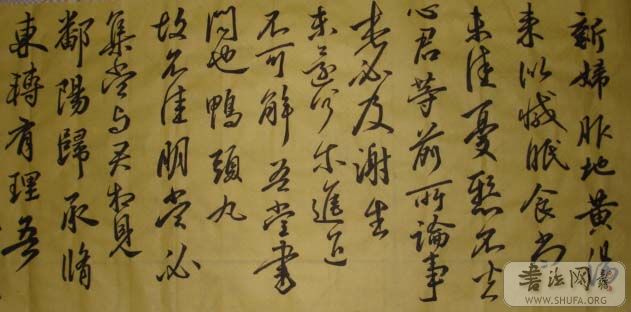 新婦服地黃湯
來似減眠食尚
未佳憂懸不去
心君等前所論事
必及謝生
未還何爾進退
不可解吾當書
問也鴨頭丸
故不佳明當必
集當與君相見
鄱陽歸承脩
東轉有理吾
書法网
WWW.SHUFA.ORG